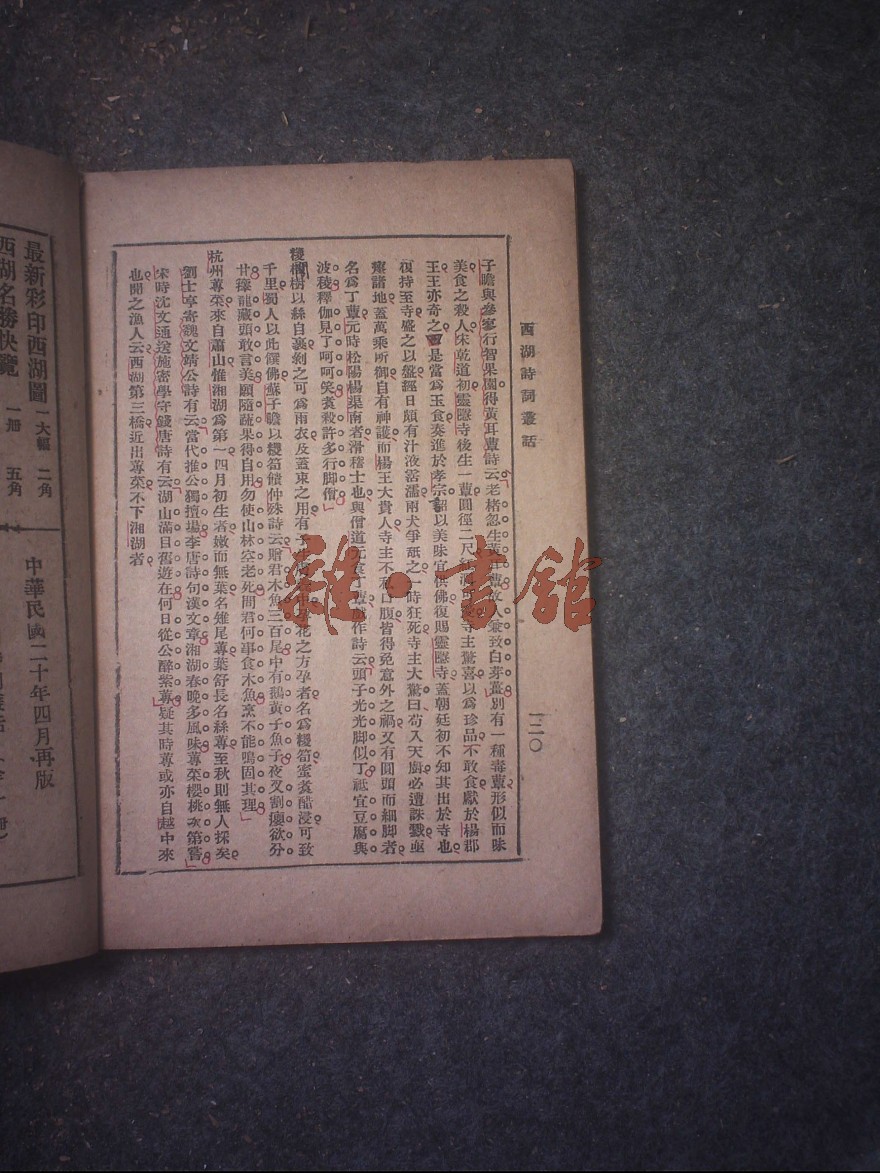 西湖詩詞叢話
一二〇
子瞻與參寥行智果園得黃耳蕈詩云老楮忽生黃耳蕈故人兼致白芽薑別有一種毒蕈形似而味
美食之殺人宋乾道初靈隱寺後生一蕈圓徑二尺寺主驚喜以爲珍品不敢食獻於楊郡
王王亦奇之曰是當爲玉食奏進於孝宗詔以美味宜供佛復賜靈隱寺蓋朝廷初不知其出於寺也
復持至寺盛之以盤經日頗有汁液沾濡兩犬爭舐之一時狂死寺主大驚曰苟入天廚必遭誅戮亟
瘞諸地蓋萬乘所御自有神護而楊王大貴人寺主不私口腹皆得免意外之禍又有圓頭而細脚者
名爲丁蕈元時松陽楊渠南者滑稽士也與僧道元食丁蕈戲作詩云頭子光光脚似丁祗宜豆腐與
波稜釋伽見了呵呵笑煮殺許多行脚僧
椶櫚樹以絲自裹剝之可爲雨衣及蓋束之用有子生膚中孕花之方孕者名爲椶筍蜜煮酷浸可致
千里蜀人以此饌佛蘇子瞻以椶筍餽仲殊詩云贈君木魚三百尾中有鵝黃子魚子夜叉割癭欲分
甘籜龍藏頭敢言美願隨蔬果得自用勿使山林空老死問君何事食木魚烹不能鳴固其理
杭州蓴菜來自蕭山惟湘湖爲第一四月初生者嫩而無葉名雉尾蓴葉舒長名絲蓴至秋則無人採矣
劉士亨寄魏文靖公詩有云當代推公獨擅場李唐詩句漢文章湘湖春晚多風味蓴菜櫻桃次第嘗
宋時沈文通送施密學守錢唐詩有云湖山滿目舊遊在何日從公醉紫蓴疑其時蓴或亦自越中來
也聞之漁人云西湖第三橋近出蓴菜不下湘湖者
最新彩印西湖圖 一大幅 二角
西湖名勝快覽 一册 五角
中華民國二十年四月再版
雜·書館